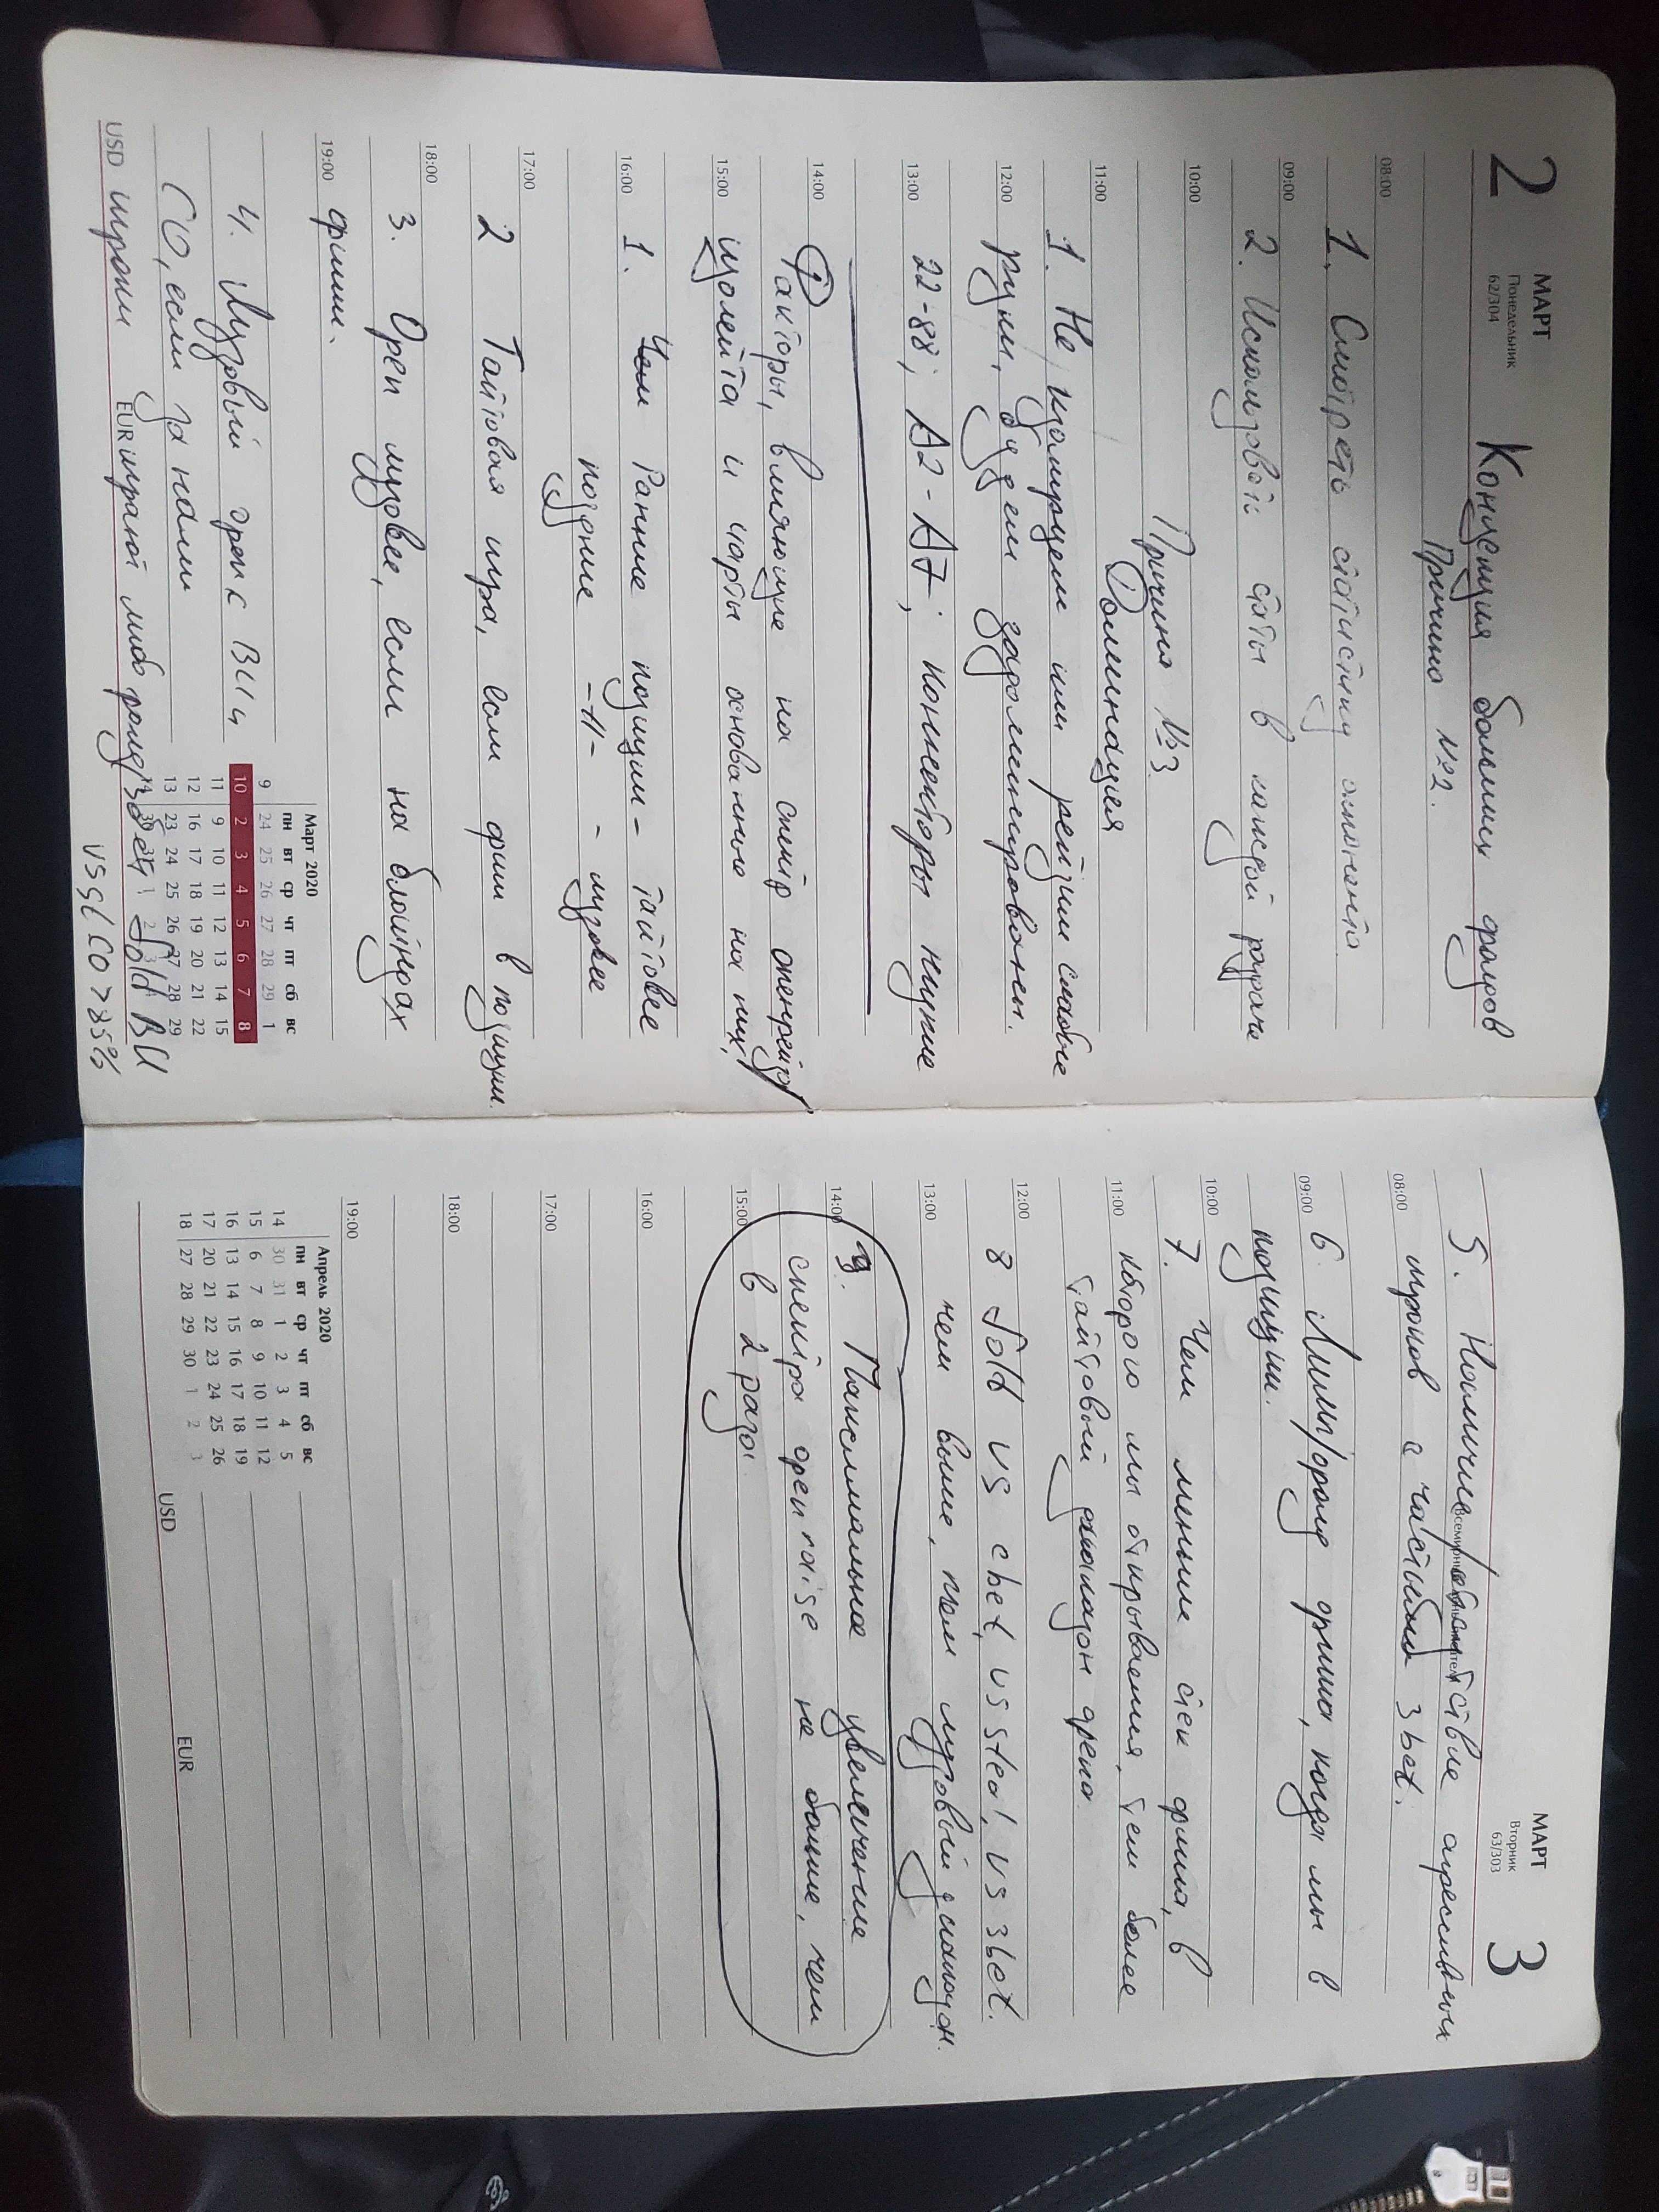 2
МАРТ
Понедельник
62/304
Концепция больших фолдов
Причина №2.
08:00
1. Смотреть статистику оппонента.
09:00
2. Использовать статы в каждой раздаче
10:00
Причина №3
11:00
Доминация
1. Не изолируем или рейзим слабые
12:00
руки, будем задоминированы.
13:00
22-88, A2-A7; коннекторы нужные
14:00
Факторы, влияющие на спектр опенрейза/
15:00
изолейта и чарты основанные на них/
16:00
1. Чем Ранние позиции - тайтовее
поздние -//- - лузовее
17:00
2 Тайтовая игра, если фиш в позиции.
18:00
3. Open лузовее, если на блайндах
19:00
фиши.
4. Лузовый open с BU и
CO, если за нами
USD
игроки
EUR
играют либо фолд/3bet fold BU
vs SL CO > 85%
Март 2020
пн вт ср чт пт сб вс
9 24 25 26 27 28 29 1
10 2 3 4 5 6 7 8
11 9 10 11 12 13 14 15
12 16 17 18 19 20 21 22
13 23 24 25 26 27 28 29
14 30 31 1 2 3 4
МАРТ
Вторник
63/303
3
5. Наличие/отсутствие агрессивных
08:00
игроков с частым 3bet.
09:00
6 Лимп/фолд фиша, когда мы в
позиции.
10:00
7. Чем меньше стек фиша, в
11:00
которого мы открываемся, тем более
тайтовый диапазон опена.
12:00
8 fold vs cbet, vs steal, vs 3bet.
13:00
чем выше, тем лузовый диапазон.
14:00
9. Максимальное увеличение
спектра open raise не больше, чем
15:00
в 2 раза.
16:00
17:00
18:00
19:00
Апрель 2020
пн вт ср чт пт сб вс
14 30 31 1 2 3 4 5
15 6 7 8 9 10 11 12
16 13 14 15 16 17 18 19
17 20 21 22 23 24 25 26
18 27 28 29 30 1 2 3
USD
EUR